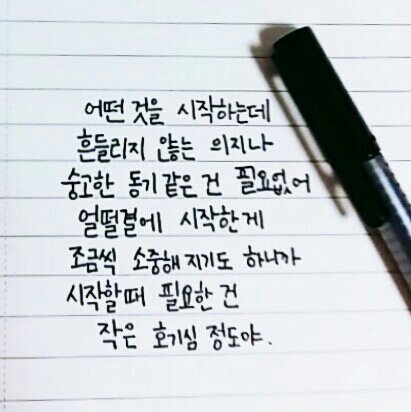 어떤 것을 시작하는데
흔들리지 않는 의지나
숭고한 동기 같은 건 필요없어
얼떨결에 시작한 게
조금씩 소중해 지기도 하니까
시작할 때 필요한 건
작은 호기심 정도야.